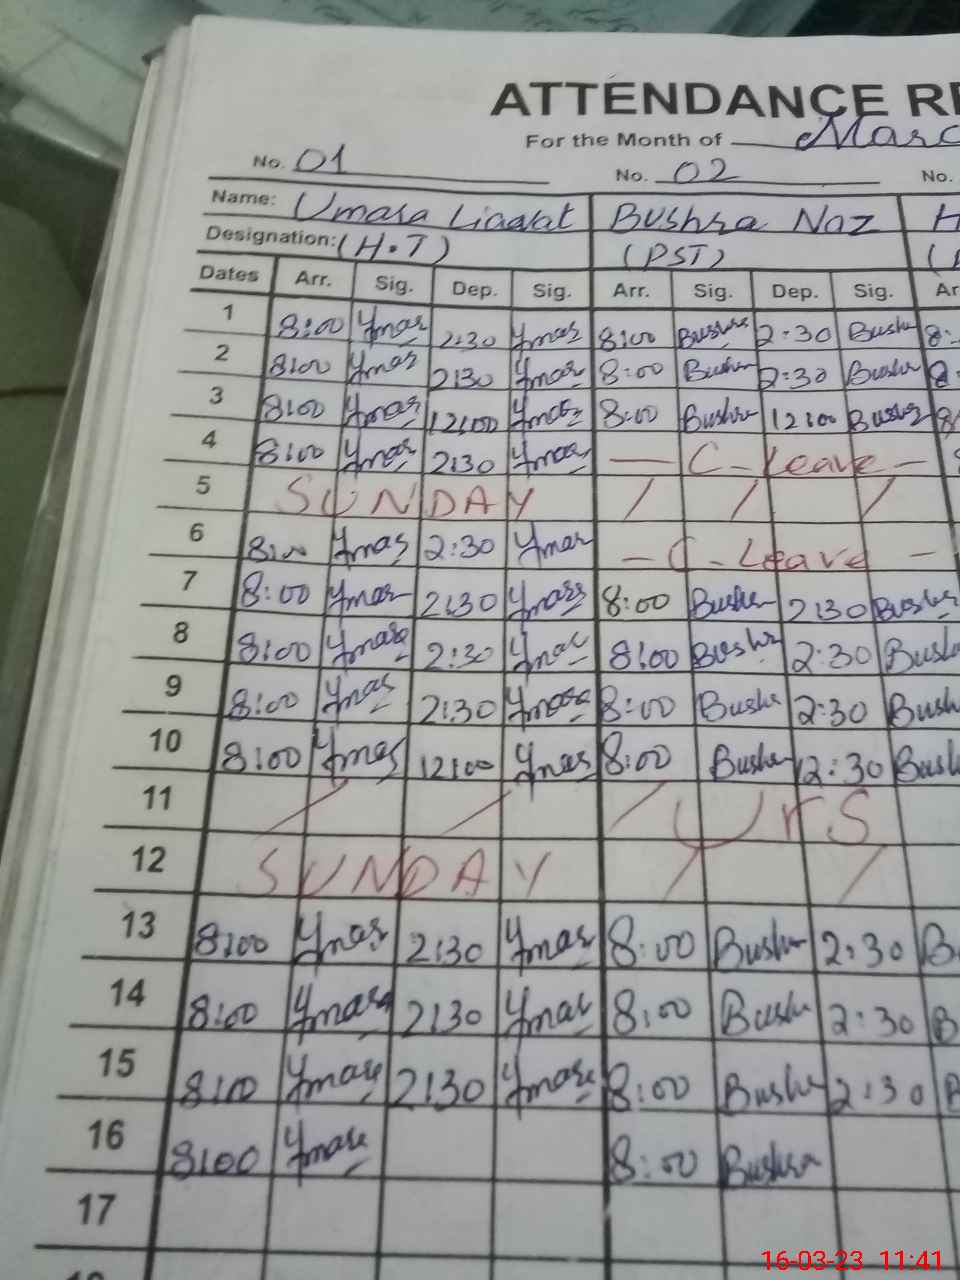 ATTENDANCE RE
For the Month of Marc
No. 01 No. 02 No.
Name: Umara Liaqat Bushra Naz H
Designation: (H.T) (PST)
Dates Arr. Sig. Dep. Sig. Arr. Sig. Dep. Sig. Ar
1 8:00 Ymar 2:30 Ymar 8:00 Bushra 2:30 Bushr 8:
2 8:00 Ymar 2:30 Ymar 8:00 Bushr 2:30 Bushr 8
3 8:00 Ymar 12:00 Ymar 8:00 Bushra 12:00 Bushr 8
4 8:00 Ymar 2:30 Ymar — C - Leave -
5 SUNDAY / / /
6 8:00 Ymar 2:30 Ymar - C - Leave -
7 8:00 Ymar 2:30 Ymar 8:00 Bushr 2:30 Bushr
8 8:00 Ymara 2:30 Ymar 8:00 Bushr 2:30 Bush
9 8:00 Ymar 2:30 Ymara 8:00 Bushr 2:30 Bush
10 8:00 Ymar 12:00 Ymar 8:00 Bushr 12:30 Bush
11 / / / Urs
12 SUNDAY / /
13 8:00 Ymar 2:30 Ymar 8:00 Bushr 2:30 B
14 8:00 Ymara 2:30 Ymar 8:00 Bushr 2:30 B
15 8:00 Ymar 2:30 Ymara 8:00 Bushr 2:30 B
16 8:00 Ymara 8:00 Bushra
17
16-03-23 11:41